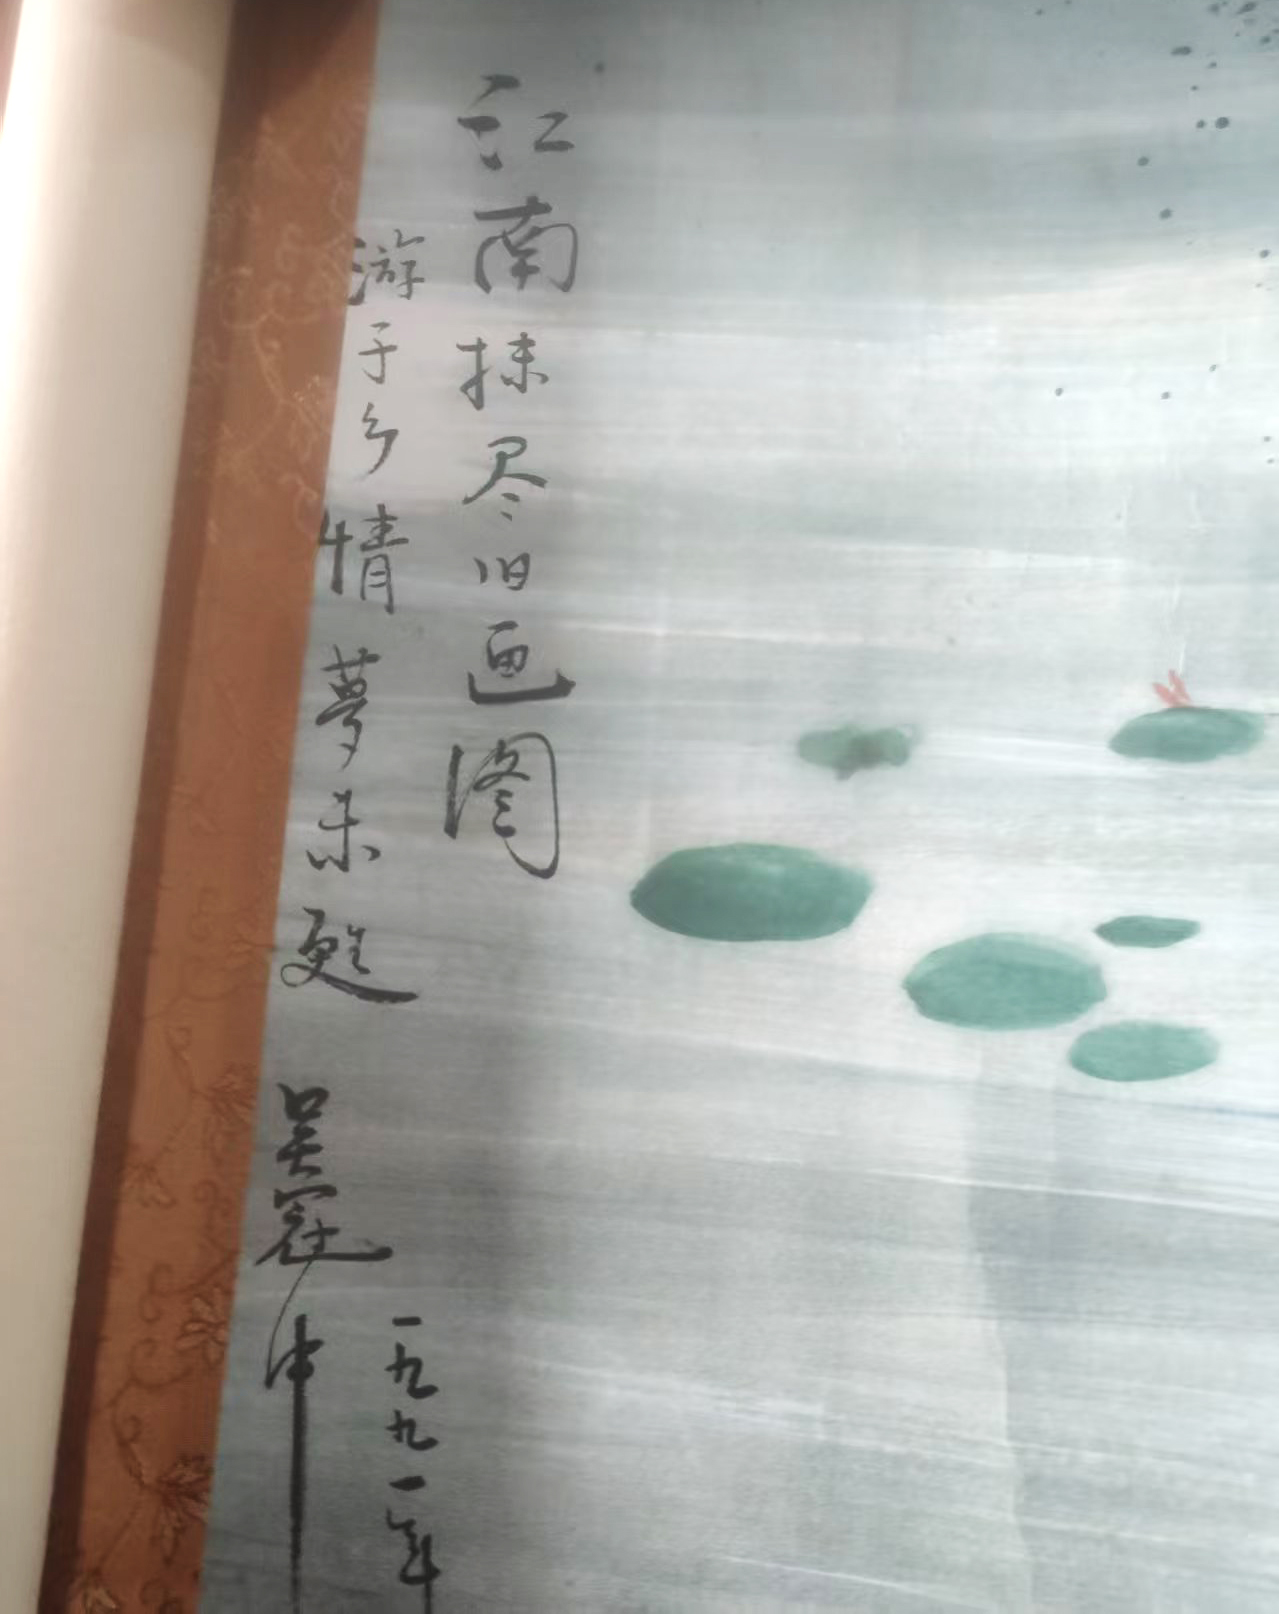 江南抹尽旧画图
游子乡情夢未甦
吴冠中
一九九一年